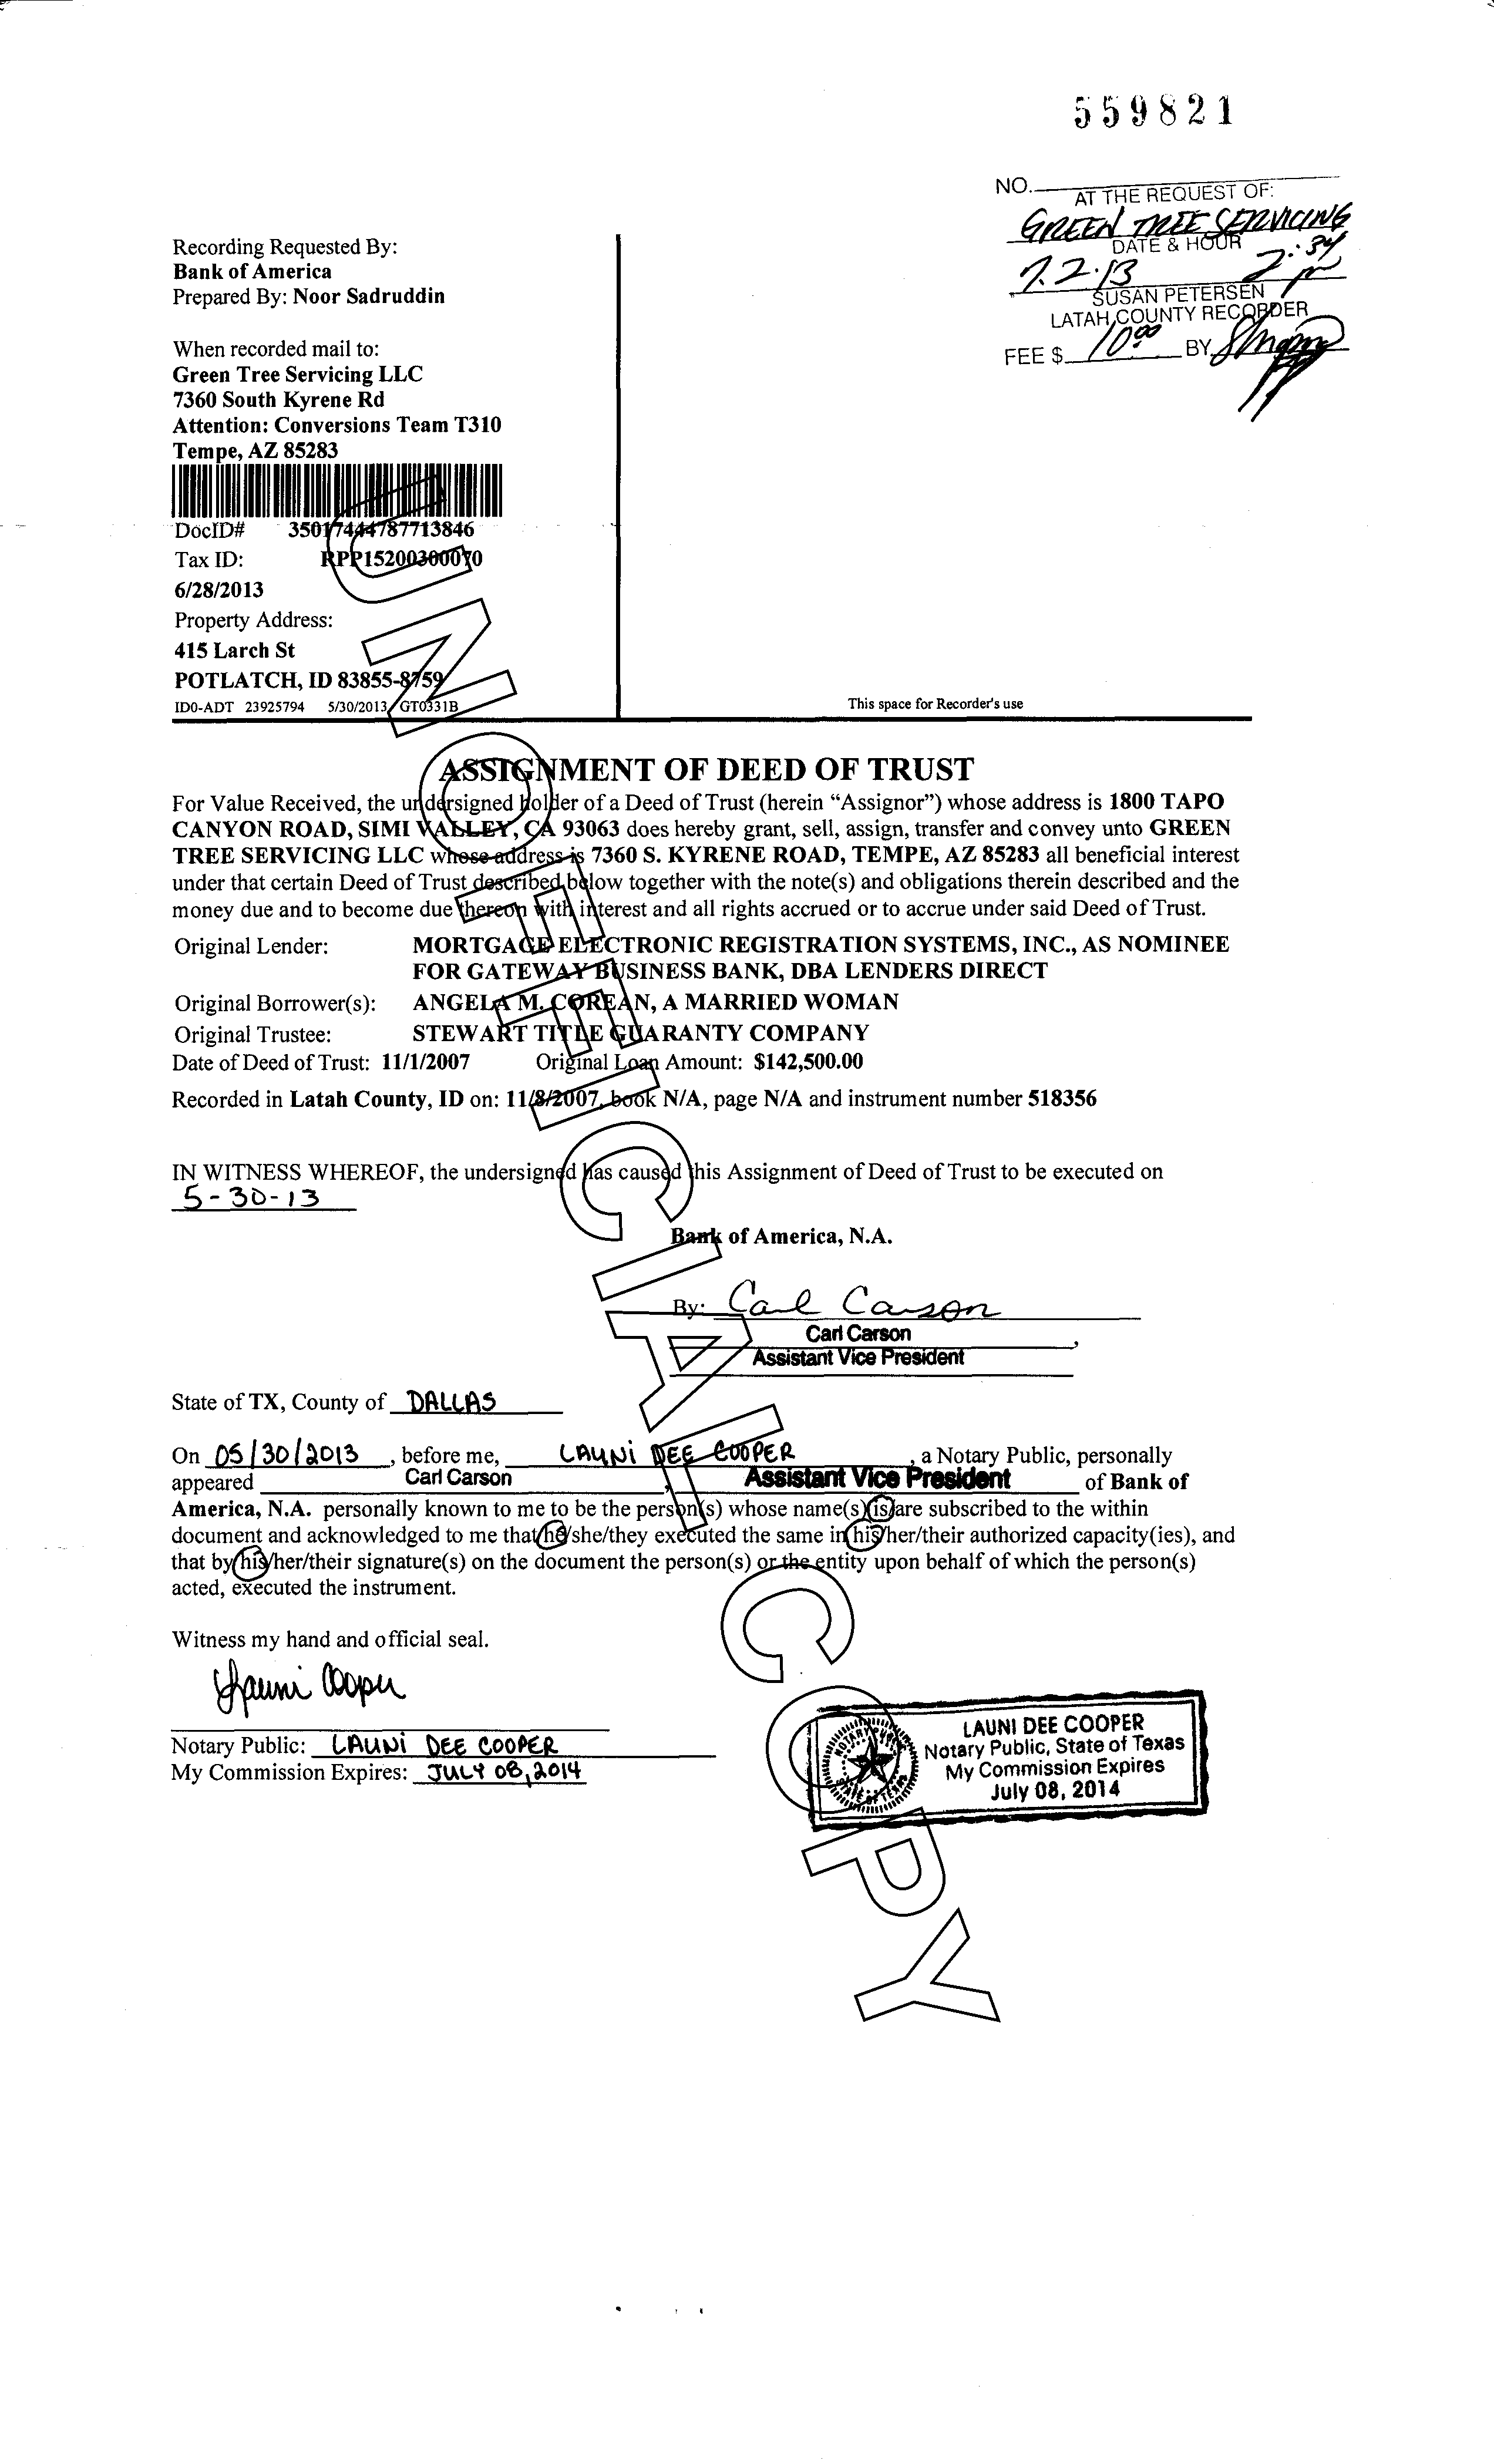 559821
NO.
AT THE REQUEST OF:
GREEN TREE SERVICING
DATE & HOUR
7.2.13 2:34
SUSAN PETERSEN
LATAH COUNTY RECORDER
FEE $ 10.00 BY
Recording Requested By:
Bank of America
Prepared By: Noor Sadruddin
When recorded mail to:
Green Tree Servicing LLC
7360 South Kyrene Rd
Attention: Conversions Team T310
Tempe, AZ 85283
DocID# 35017444787713846
Tax ID: RPP15200300070
6/28/2013
Property Address:
415 Larch St
POTLATCH, ID 83855-8759
ID0-ADT 23925794 5/30/2013 GT0331B
This space for Recorder's use
UNOFFICIAL COPY
ASSIGNMENT OF DEED OF TRUST
For Value Received, the undersigned holder of a Deed of Trust (herein “Assignor”) whose address is 1800 TAPO
CANYON ROAD, SIMI VALLEY, CA 93063 does hereby grant, sell, assign, transfer and convey unto GREEN
TREE SERVICING LLC whose address is 7360 S. KYRENE ROAD, TEMPE, AZ 85283 all beneficial interest
under that certain Deed of Trust described below together with the note(s) and obligations therein described and the
money due and to become due thereon with interest and all rights accrued or to accrue under said Deed of Trust.
Original Lender: MORTGAGE ELECTRONIC REGISTRATION SYSTEMS, INC., AS NOMINEE
FOR GATEWAY BUSINESS BANK, DBA LENDERS DIRECT
Original Borrower(s): ANGELA M. COREAN, A MARRIED WOMAN
Original Trustee: STEWART TITLE GUARANTY COMPANY
Date of Deed of Trust: 11/1/2007 Original Loan Amount: $142,500.00
Recorded in Latah County, ID on: 11/8/2007, book N/A, page N/A and instrument number 518356
IN WITNESS WHEREOF, the undersigned has caused this Assignment of Deed of Trust to be executed on
5-30-13
Bank of America, N.A.
By: Carl Carson
Carl Carson
Assistant Vice President
State of TX, County of DALLAS
On 05/30/2013, before me, LAUNI DEE COOPER, a Notary Public, personally
appeared Carl Carson, Assistant Vice President of Bank of
America, N.A. personally known to me to be the person(s) whose name(s) is/are subscribed to the within
document and acknowledged to me that he/she/they executed the same in his/her/their authorized capacity(ies), and
that by his/her/their signature(s) on the document the person(s) or the entity upon behalf of which the person(s)
acted, executed the instrument.
Witness my hand and official seal.
Launi Cooper
Notary Public: LAUNI DEE COOPER
My Commission Expires: JULY 08, 2014
LAUNI DEE COOPER
Notary Public, State of Texas
My Commission Expires
July 08, 2014
NOTARY PUBLIC
STATE OF TEXAS